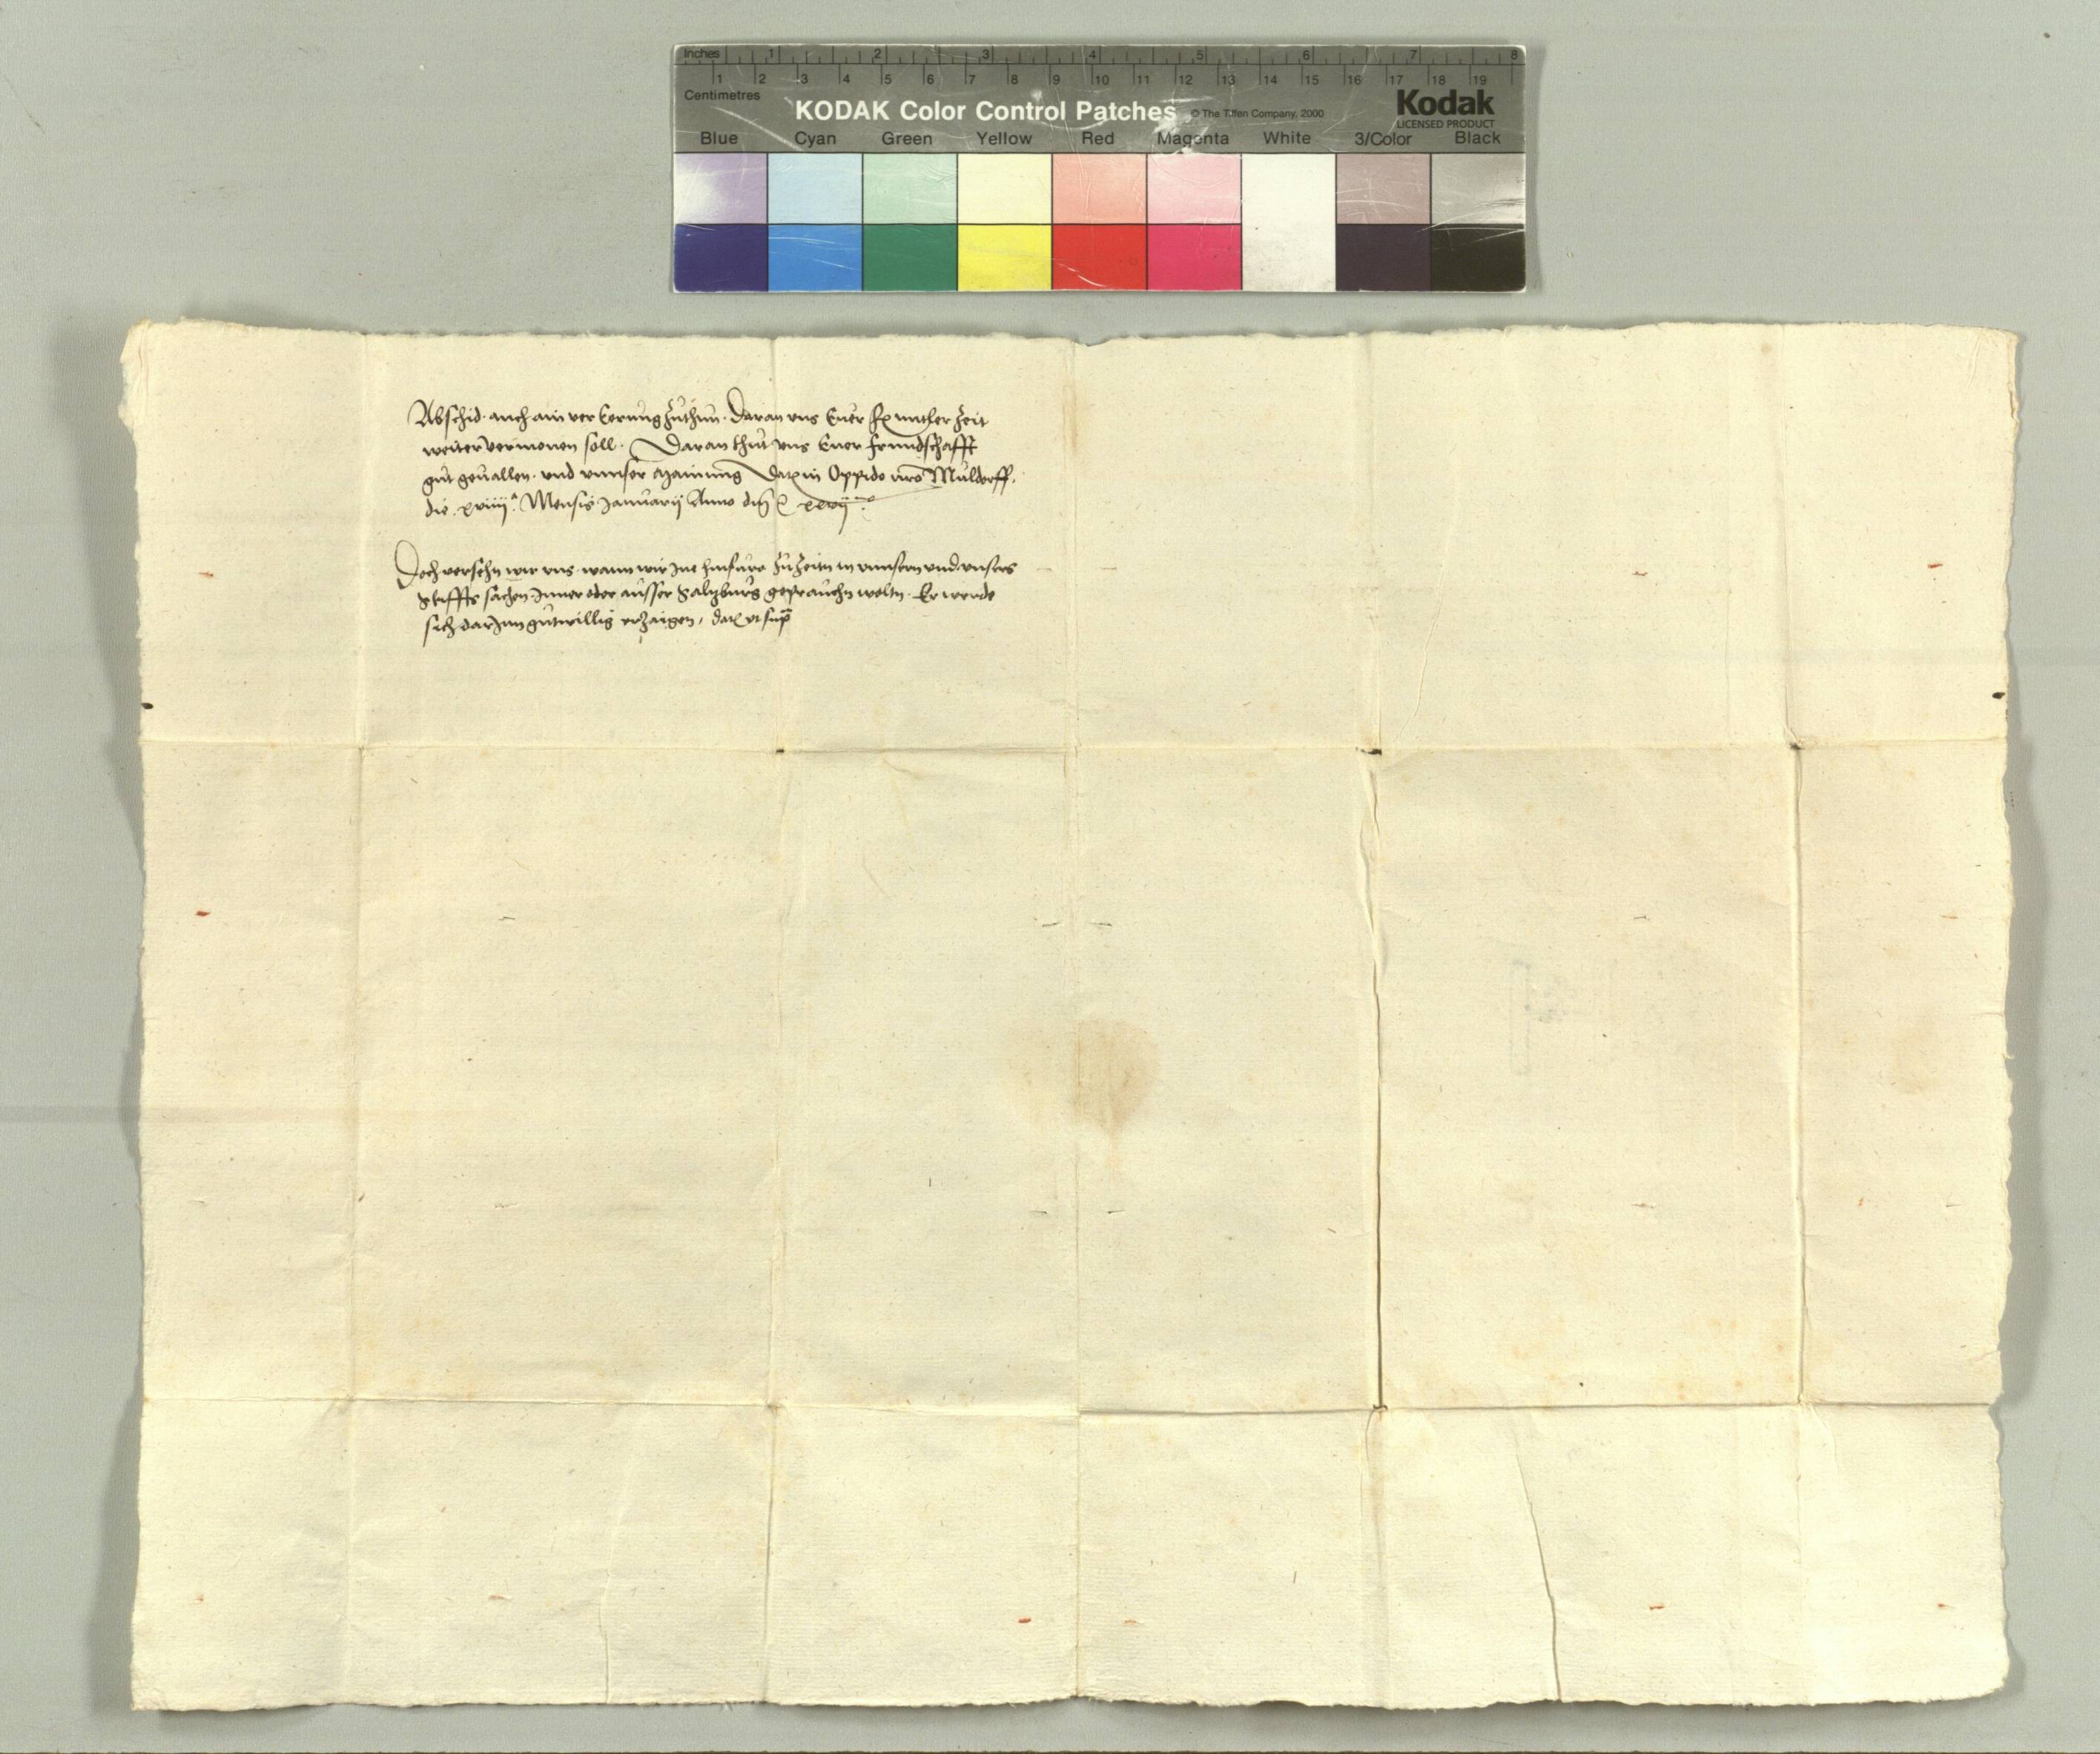 Inches 1 2 3 4 5 6 7 8
1 2 3 4 5 6 7 8 9 10 11 12 13 14 15 16 17 18 19
Centimetres
KODAK Color Control Patches © The Tiffen Company, 2000 Kodak
LICENSED PRODUCT
Blue Cyan Green Yellow Red Magenta White 3/Color Black
Abschid. auch ain vererung zuthun. Daran uns Euer mitler zeit
weiter vermonen soll. Daran thut uns Euer freundschafft
gut geuallen. und unnser Mainung Dat in Oppido nro Muldorff.
die. xviiij. Mensis Januarij Anno dni
Doch versehn wir uns. wann wir Ine hinfuro zuzeitn in unnsern und unsers
Stiffts sachen Inner oder ausser Saltzburg geprauchn woltn. Er werde
sich darInn gutwillig erzaigen, dat ut supra